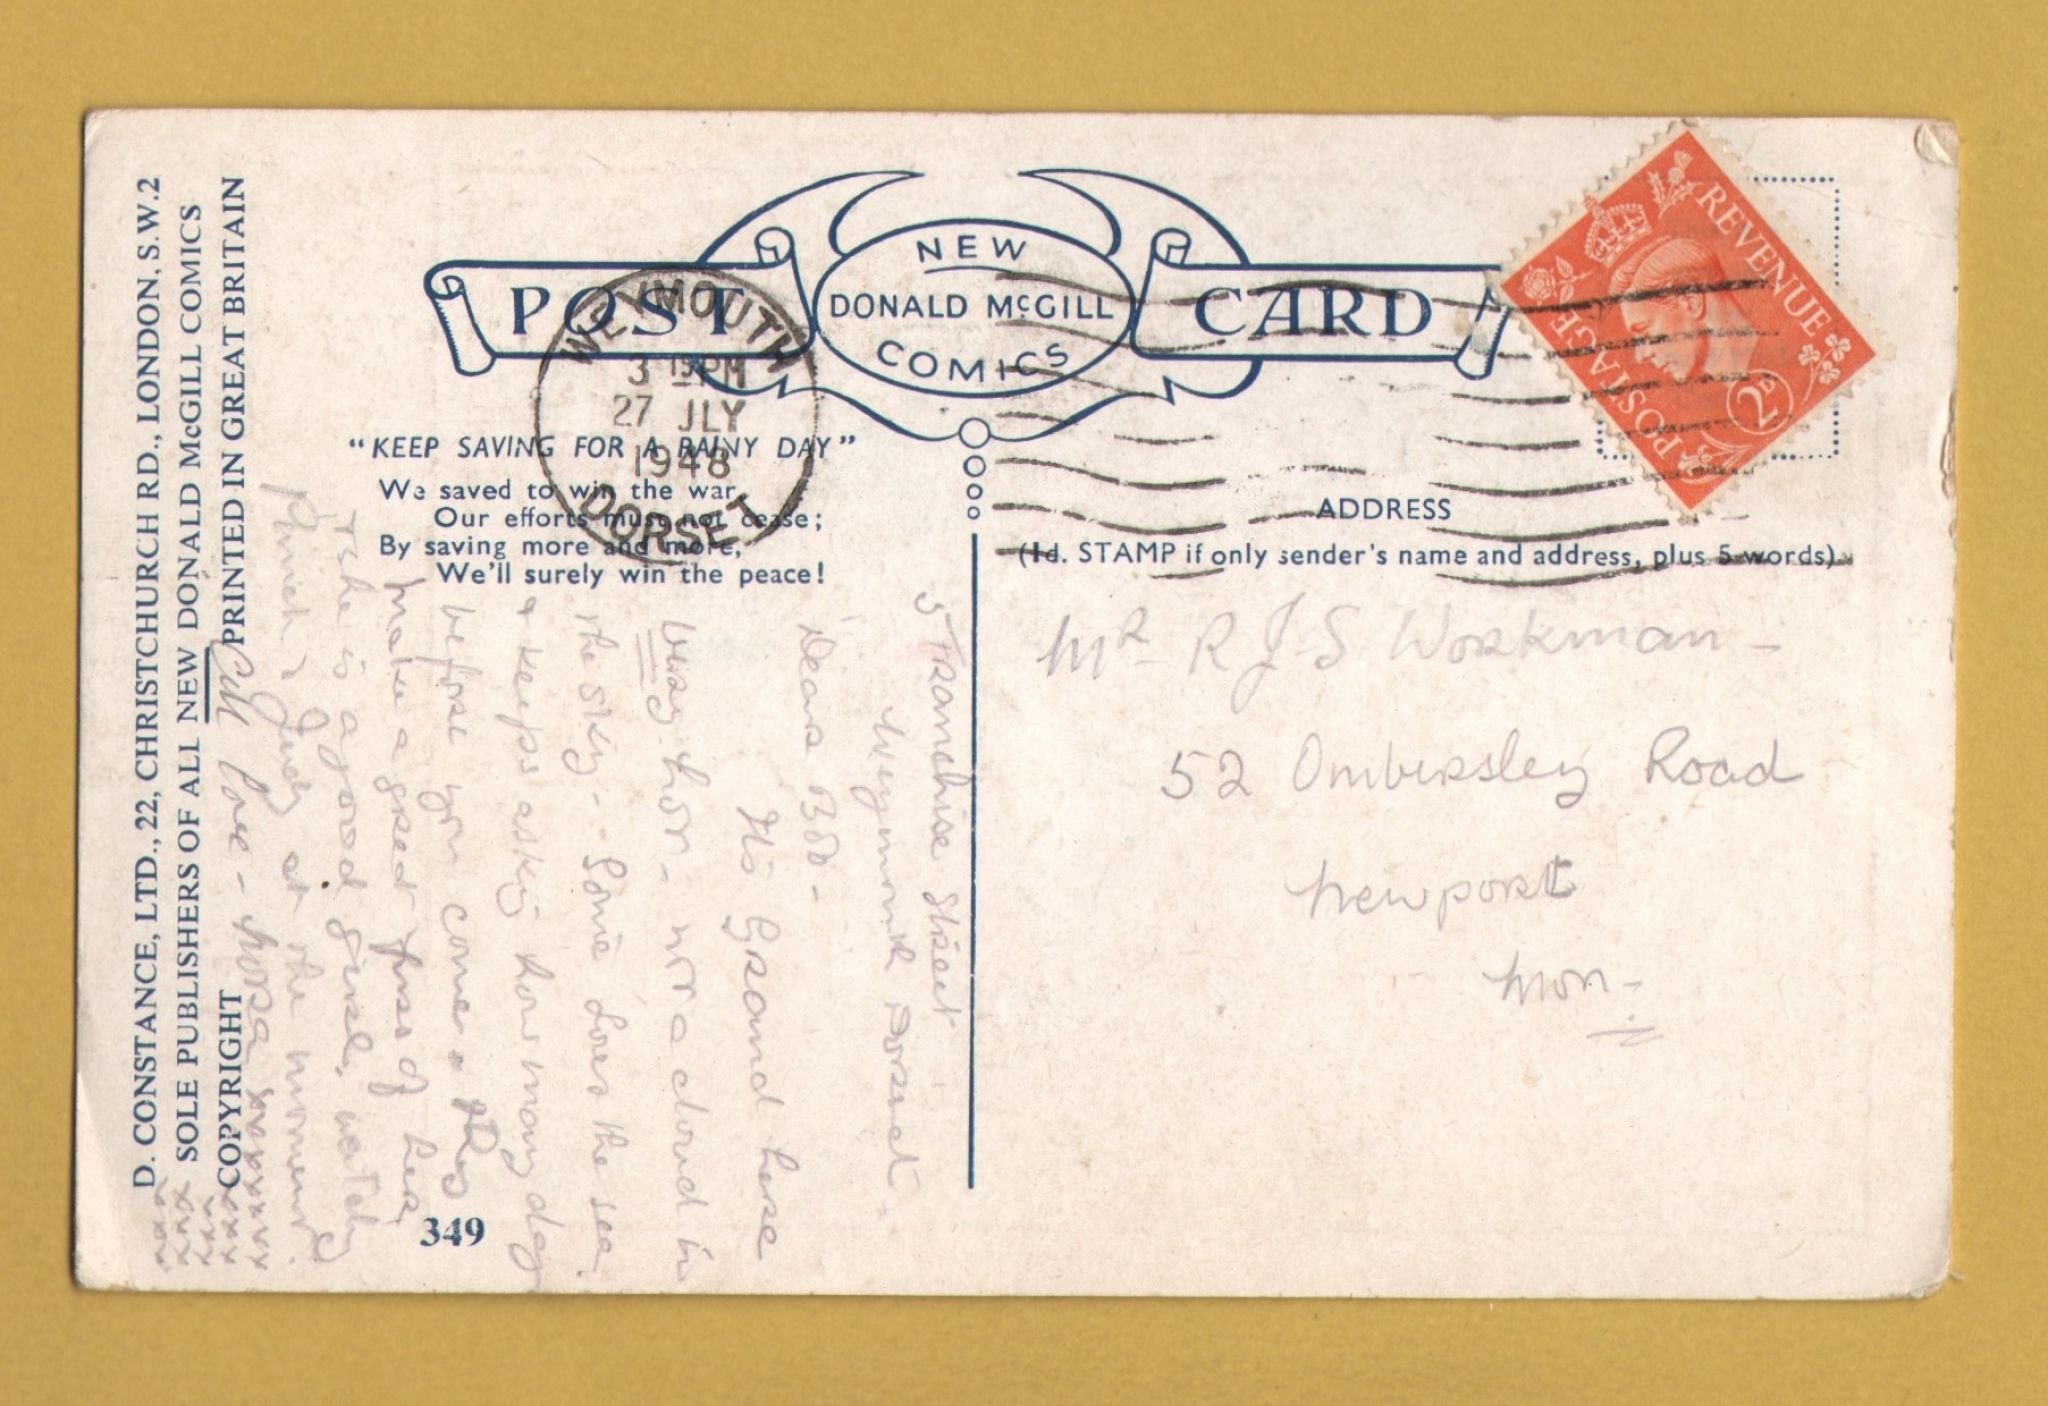 POST CARD
NEW
DONALD McGILL
COMICS
WEYMOUTH
3 15 PM
27 JLY
1948
DORSET
REVENUE
POSTAGE
2D
"KEEP SAVING FOR A RAINY DAY"
We saved to win the war,
Our efforts must not cease;
By saving more and more,
We'll surely win the peace!
ADDRESS
(1d. STAMP if only sender's name and address, plus 5 words)
Mr R J S Workman -
52 Ombersley Road
Newport
Mon -
5 Franchise Street
Weymouth Dorset
Dear Bob -
It's Grand here
very hot - not a cloud in
the sky - Loves the sea
& keeps asking how many days
before you come. They
make a great fuss of her,
& she is a good girl, watching
Punch & Judy at the moment.
All love -
xxxxxxxx
xxxx
xxx
xxxx
xxxx
D. CONSTANCE, LTD., 22, CHRISTCHURCH RD., LONDON, S.W.2
SOLE PUBLISHERS OF ALL NEW DONALD McGILL COMICS
COPYRIGHT PRINTED IN GREAT BRITAIN
349